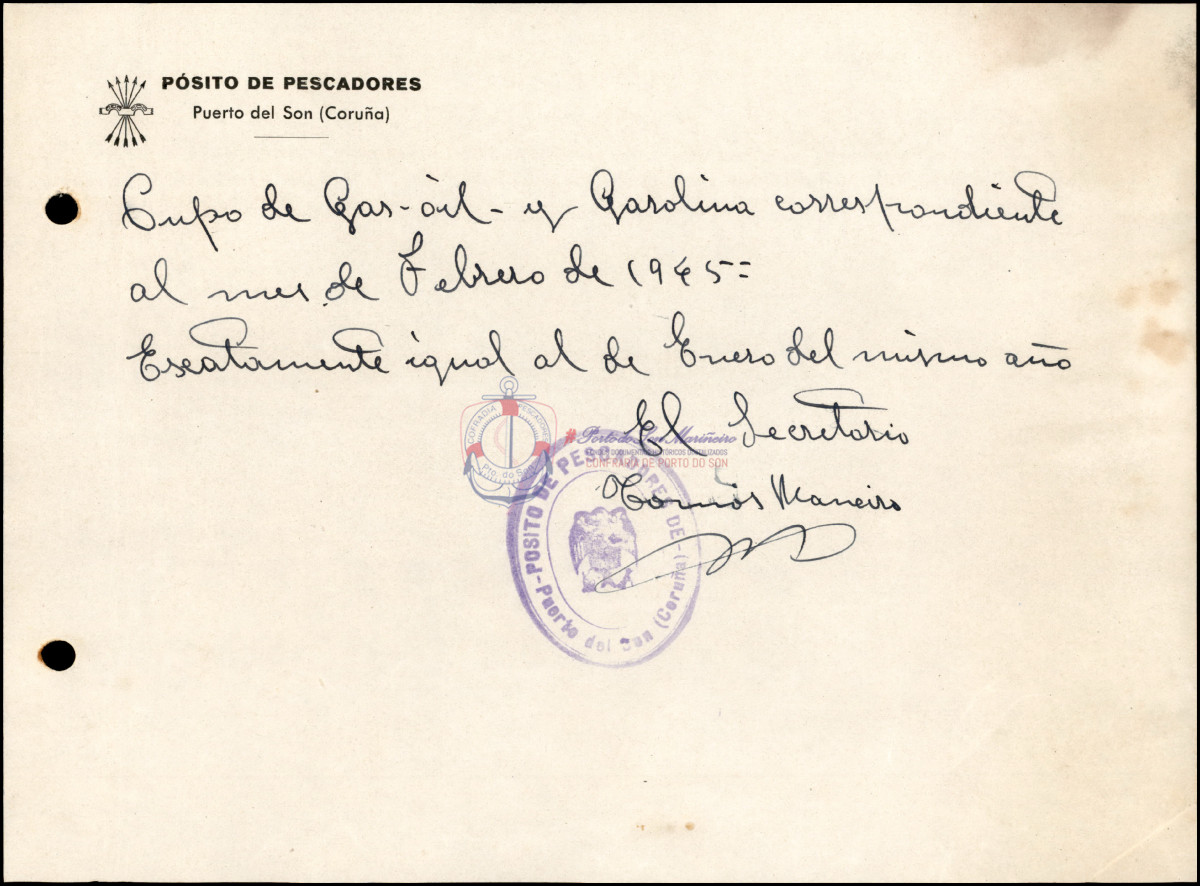 PÓSITO DE PESCADORES
Puerto del Son (Coruña)
Cupo de Gas-òil- y Gasolina correspondiente
al mes de Febrero de 1945=
Escatamente igual al de Enero del mismo año
El Secretario
Tomás Maneiro
COFRADIA PESCADORES
Pto. do Son
#Porto do Son Mariñeiro
CONFRARÍA DE PORTO DO SON
-POSITO DE PESCADORES DEL-
Puerto del Son (Coruña)